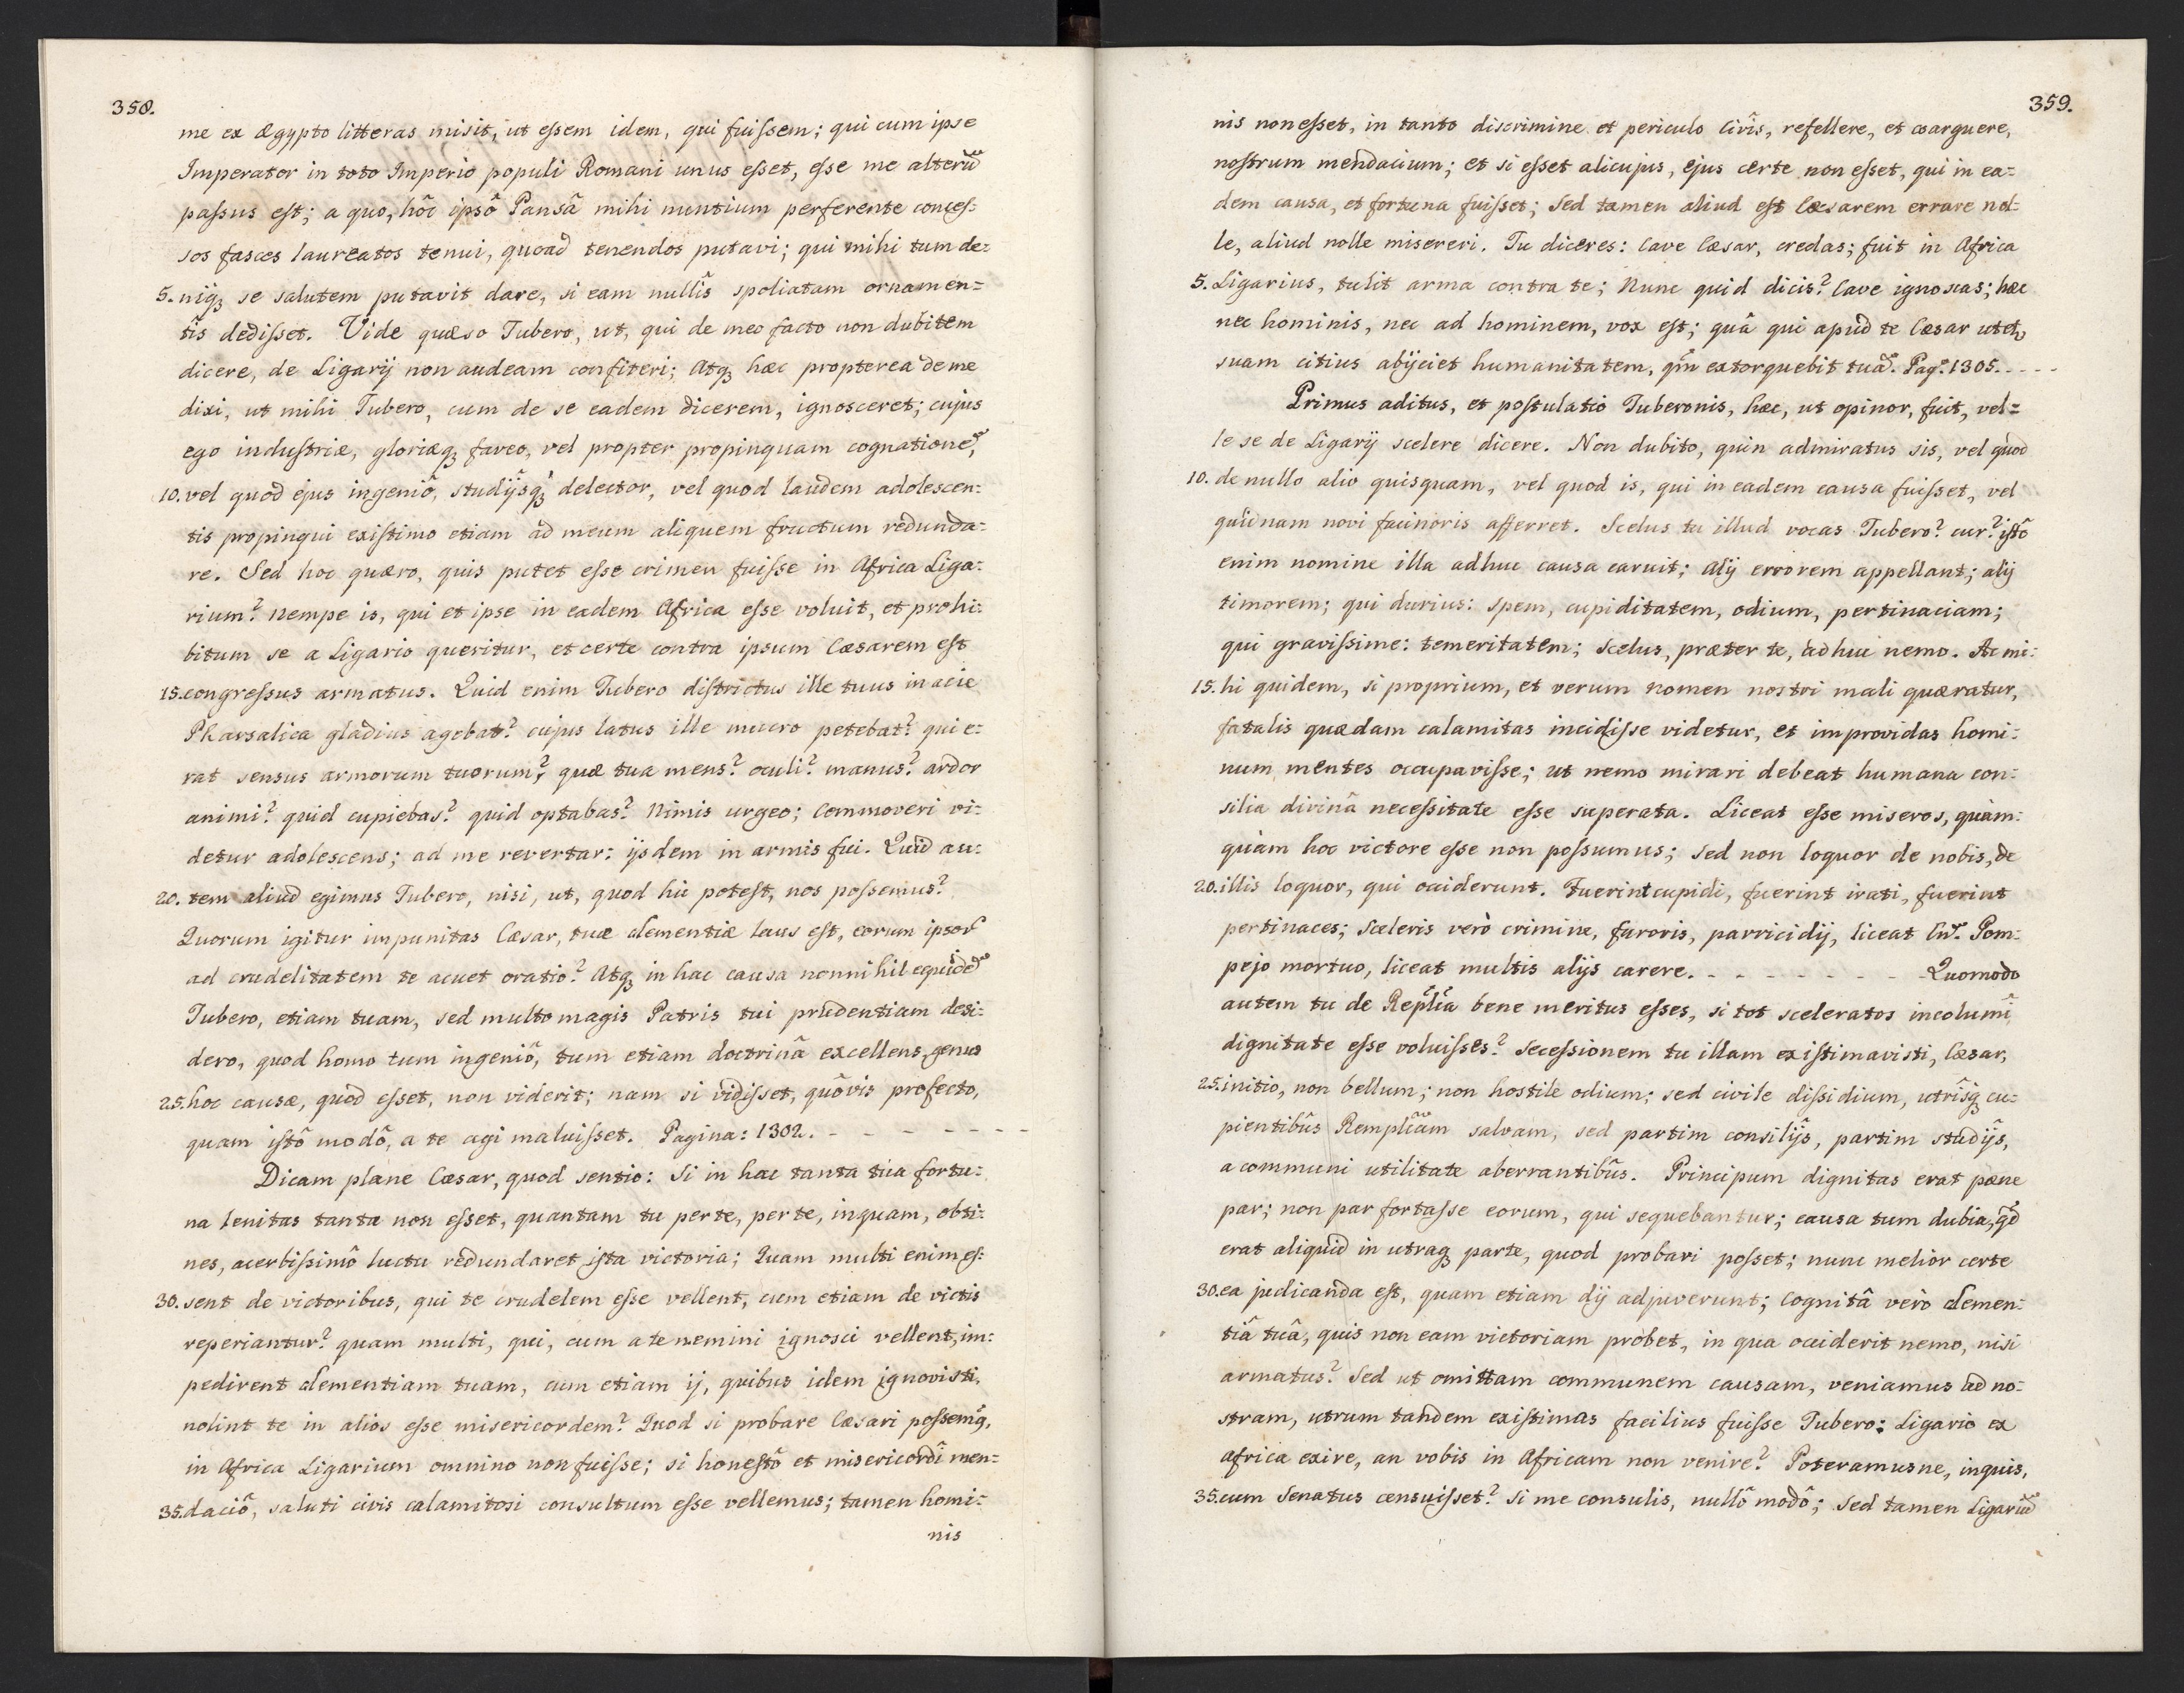 358.
me ex Ægypto litteras misit, ut essem idem, qui fuissem; qui cum ipse
Imperator in toto Imperio populi Romani unus esset, esse me alterũ
passus est; a quo, hôc ipsô Pansâ mihi nuntium perferente conces=
sos fasces laureatos tenui, quoad tenendos putavi; qui mihi tum de=
5. niq3 se salutem putavit dare, si eam nullîs spoliatam ornamen=
tîs dedisset. Vide quæso Tubero, ut, qui de meo facto non dubitem
dicere, de Ligarij non audeam confiteri; Atq3 hæc propterea de me
dixi, ut mihi Tubero, cum de se eadem dicerem, ignosceret; cujus
ego industriæ, gloriæq3 faveo, vel propter propinquam cognationẽ,
10. vel quod ejus ingeniô, studijsq3 delector, vel quod laudem adolescen=
tis propinqui existimo etiam ad meum aliquem fructum redunda=
re. Sed hoc quæro, quis putet esse crimen fuisse in Africa Liga=
rium? Nempe is, qui et ipse in eadem Africa esse voluit, et prohi=
bitum se a Ligario queritur, et certe contra ipsum Cæsarem est
15. congressus armatus. Quid enim Tubero districtus ille tuus in acie
Pharsalica gladius agebat? cujus latus ille mucro petebat? qui e=
rat sensus armorum tuorum? quæ tua mens? oculi? manus? ardor
animi? quid cupiebas? quid optabas? Nimis urgeo; Commoveri vi=
detur adolescens; ad me revertar: ijsdem in armis fui. Quid au=
20. tem aliud egimus Tubero, nisi, ut, quod hic potest, nos possemus?
Quorum igitur impunitas Cæsar, tuæ clementiæ laus est, eorum ipsor̃
ad crudelitatem te acuet oratio? Atq3 in hac causa nonnihil equidẽ
Tubero, etiam tuam, sed multo magis Patris tui prudentiam desi=
dero, quod homo tum ingeniô, tum etiam doctrinâ excellens, genus
25. hoc causæ, quod esset, non viderit; nam si vidisset, quôvis profecto,
quam istô modô, a te agi maluisset. Pagina: 1302. - - - - - - -
Dicam plane Cæsar, quod sentio: Si in hac tanta tua fortu=
na lenitas tanta non esset, quantam tu per te, per te, inquam, obti=
nes, acerbissimô luctu redundaret ista victoria; Quam multi enim es=
30. sent de victoribus, qui te crudelem esse vellent, cum etiam de victis
reperiantur? quam multi, qui, cum a te nemini ignosci vellent, im=
pedirent clementiam tuam, cum etiam ij, quibus idem ignovisti,
nolint te in alios esse misericordem? Quod si probare Cæsari possem9,
in Africa Ligarium omnino non fuisse; si honestô et misericordî men=
35. daciô, saluti civis calamitosi consultum esse vellemus; tamen homi=
nis
359.
nis non esset, in tanto discrimine et periculo Civîs, refellere, et coarguere,
nostrum mendacium; et si esset alicujus, ejus certe non esset, qui in ea=
dem causa, et fortuna fuisset; Sed tamen aliud est Cæsarem errare nol=
le, aliud nolle misereri. Tu diceres: Cave Cæsar, credas; fuit in Africa
5. Ligarius, tulit arma contra te; Nunc quid dicis? Cave ignoscas; hæc
nec hominis, nec ad hominem, vox est; quâ qui apud te Cæsar utet,
suam citius abijciet humanitatem, qm̃ extorquebit tuã. Pag: 1305. - - - -
Primus aditus, et postulatio Tuberonis, hæc, ut opinor, fuit, vel=
le se de Ligarij scelere dicere. Non dubito, quin admiratus sis, vel quod
10. de nullo alio quisquam, vel quod is, qui in eadem causa fuisset, vel
quidnam novi facinoris afferret. Scelus tu illud vocas Tubero? cur? istô
enim nomine illa adhuc causa caruit; Alij errorem appellant; alij
timorem; qui durius: spem, cupiditatem, odium, pertinaciam;
qui gravissime: temeritatem; Scelus, præter te, adhuc nemo. Ac mi=
15. hi quidem, si proprium, et verum nomen nostri mali quæratur,
fatalis quædam calamitas incidisse videtur, et improvidas homi=
num mentes occupavisse; ut nemo mirari debeat humana con=
silia divinâ necessitate esse superata. Liceat esse miseros, quàm=
quàm hoc victore esse non possumus; Sed non loquor de nobis, de
20. illis loquor, qui occiderunt. Fuerint cupidi, fuerint irati, fuerint
pertinaces; Sceleris verò crimine, furoris, parricidij, liceat Cn. Pom=
pejo mortuo, liceat multis alijs carere. - - - - - - - - - Quomodo
autem tu de Replĩca bene meritus esses, si tot sceleratos incolumî
dignitate esse voluisses? Secessionem tu illam existimavisti, Cæsar,
25. initio, non bellum; non hostile odium; sed civile dissidium, utrîsq3 cu=
pientibûs Remplĩcam salvam, sed partim consilijs, partim studijs,
a communi utilitate aberrantibûs. Principum dignitas erat pæne
par; non par fortasse eorum, qui sequebantur; causa tum dubia, qd̃
erat aliquid in utraq3 parte, quod probari posset; nunc melior certe
30. ea judicanda est, quam etiam dij adjuverunt; Cognitâ verò clemen=
tiâ tuâ, quis non eam victoriam probet, in qua occiderit nemo, nisi
armatus? Sed ut omittam communem causam, veniamus ad no=
stram, utrum tandem existimas facilius fuisse Tubero: Ligario ex
Africa exire, an vobis in Africam non venire? Poteramusne, inquis,
35. cum Senatus censuisset? Si me consulis, nullô modô; Sed tamen Ligariũ